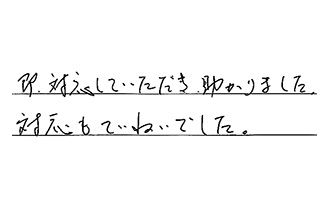 即、対応していただき、助かりました。
対応もていねいでした。